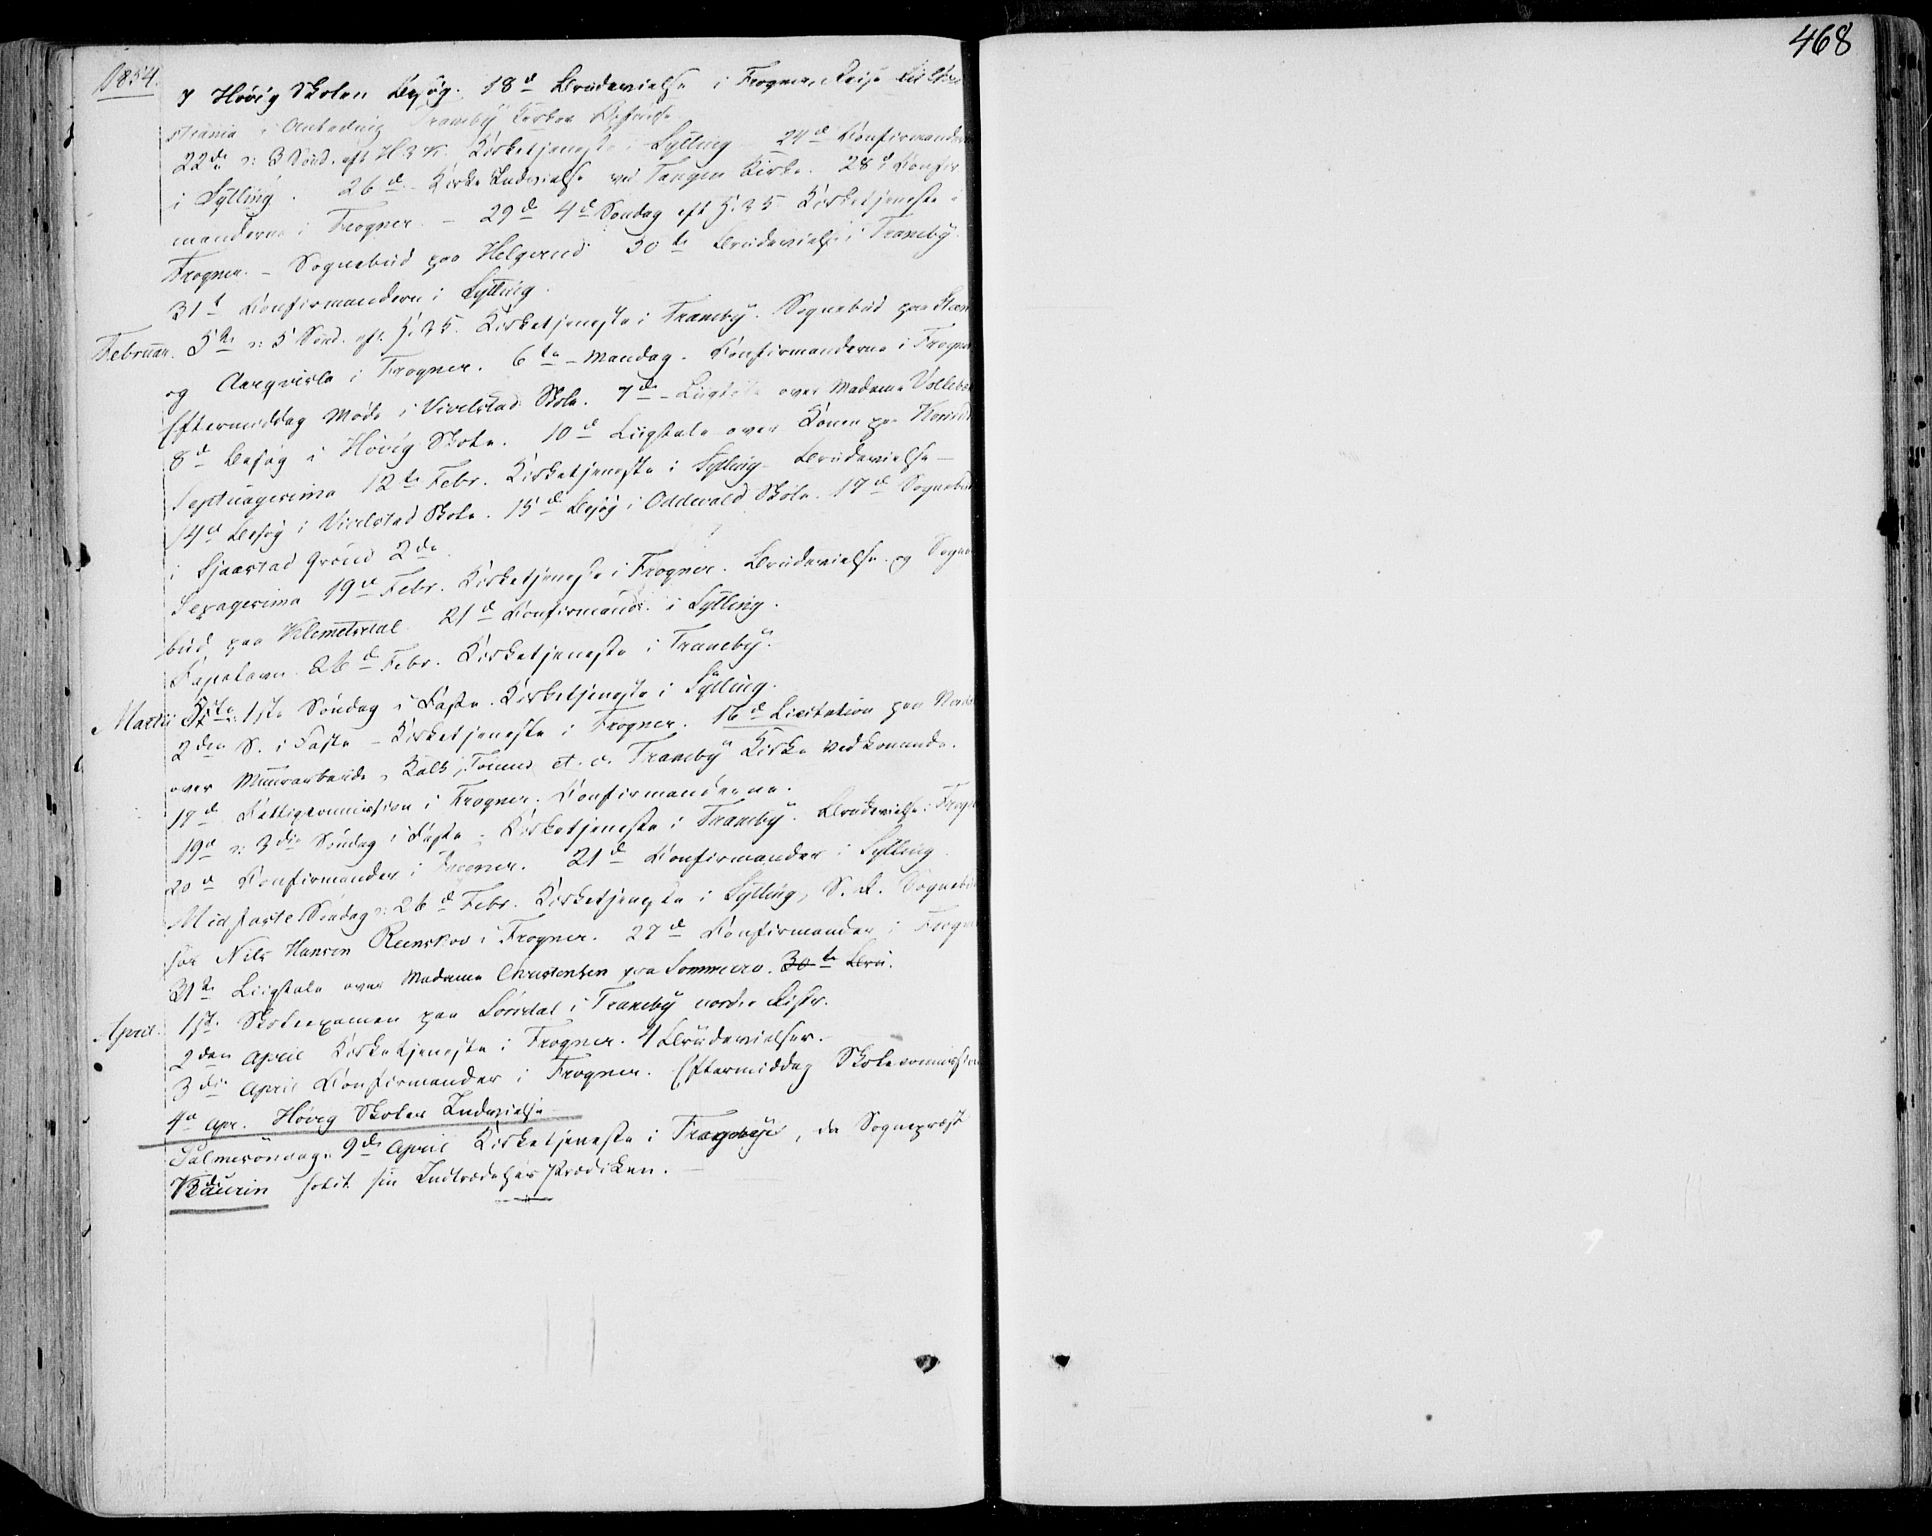 468
1854.
I Høvig Skolen Besøg. 18d Brudevielse i Frogner. Reise til Chri
stiania i Anledning Tranby Kirkes
22de : 3 Sønd. eft. H3K. Kirketjeneste i Sylling 24d Confirmanderne
i Sylling. 26d Kirke Indvielse ved Tangen Kirke. 28d Confir
manderne i Frogner. - 29d 4d Søndag eft H.3K Kirketjeneste i
Frogner. - Sognebud paa Helgerud 30te Brudevielse i Tranby.
31t Confirmanderne i Sylling.
Februar. 5te : 5 Sønd. eft. H.3K. Kirketjeneste i Tranby. Sognebud paa
og Aarqvisla i Frogner. 6te - Mandag. Confirmanderne i Frogner
Eftermiddag Møde i Vivelstad Skole. 7de - Liigtale over Madame
8d Besøg i Høvig Skole. 10d Liigtale over Konen paa
Septuagesima 12te Febr. Kirketjeneste i Sylling - Brudevielse -
14d Besøg i Vivelstad Skole. 15d Besøg i Oddevald Skole. 17d Sognebud
i Sjaastad Grønd 2de.
Sexagesima 19de Febr. Kirketjeneste i Frogner. Brudevielse og Sogne
bud paa Klemetsdal. 21d Confirmand. i Sylling.
Fastelavn. 26d Febr. Kirketjeneste i Tranby.
Martii 5te : 1ste Søndag i Faste. Kirketjeneste i Sylling.
2den S. i Faste - Kirketjeneste i Frogner. 16d Licitation paa
over Muurarbeide, Kalk, Tømmer et. c. Tranby Kirke vedkomende.
17d Fattigcommission i Frogner. Confirmanderne.
19d : 3die Søndag i Faste - Kirketjeneste i Tranby. Brudevielse i Frogner
20d Confirmander i Frogner. 21d Confirmander i Sylling.
Midfaste Søndag : 26d Febr. Kirketjeneste i Sylling, S. d. Sognebud
hos Nils Hansen Reenskov i Frogner. 27d Confirmander i Frogner
31te Liigtale over Madame Christensen paa Sommero. 30te Bru.
April. 1ste Skoleexamen paa Sørsdal i Tranby nordre Distr.
2den April Kirketjeneste i Frogner. 4 Brudevielser.
3die April Confirmander i Frogner. Eftermiddag Skolecommission
4d Apr. Høvig Skoles Indvielse
Palmesøndag : 9de April Kirketjeneste i Tranby, da Sognepræst
Kaurin holdt sin Indtrædelses Prædiken.